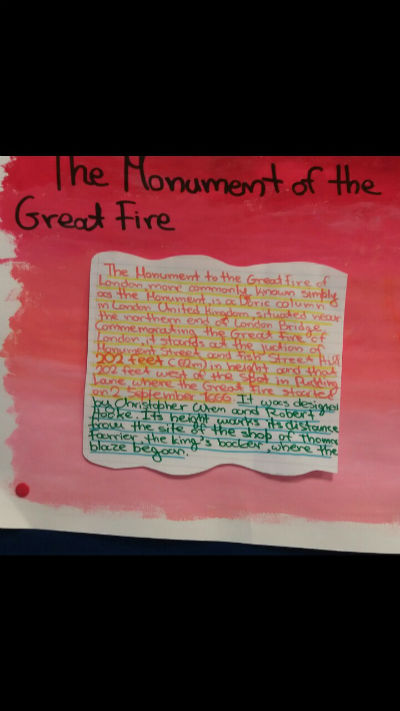 The Monument of the
Great Fire
The Monument to the Great Fire of
London, more commonly known simply
as the Monument, is a Doric column
in London United Kingdom, situated near
the northern end of London Bridge.
Commemorating the Great Fire of
London, it stands at the juction of
Monument Street and Fish Street Hill
202 feet (62m) in height and that
202 feet west of the spot in Pudding
Lane where the Great Fire started
on 2 September 1666. It was designed
by Christopher Wren and Robert
Hooke. Its height marks its distance
from the site of the shop of Thomas
farrier the king's backer, where the
blaze began.